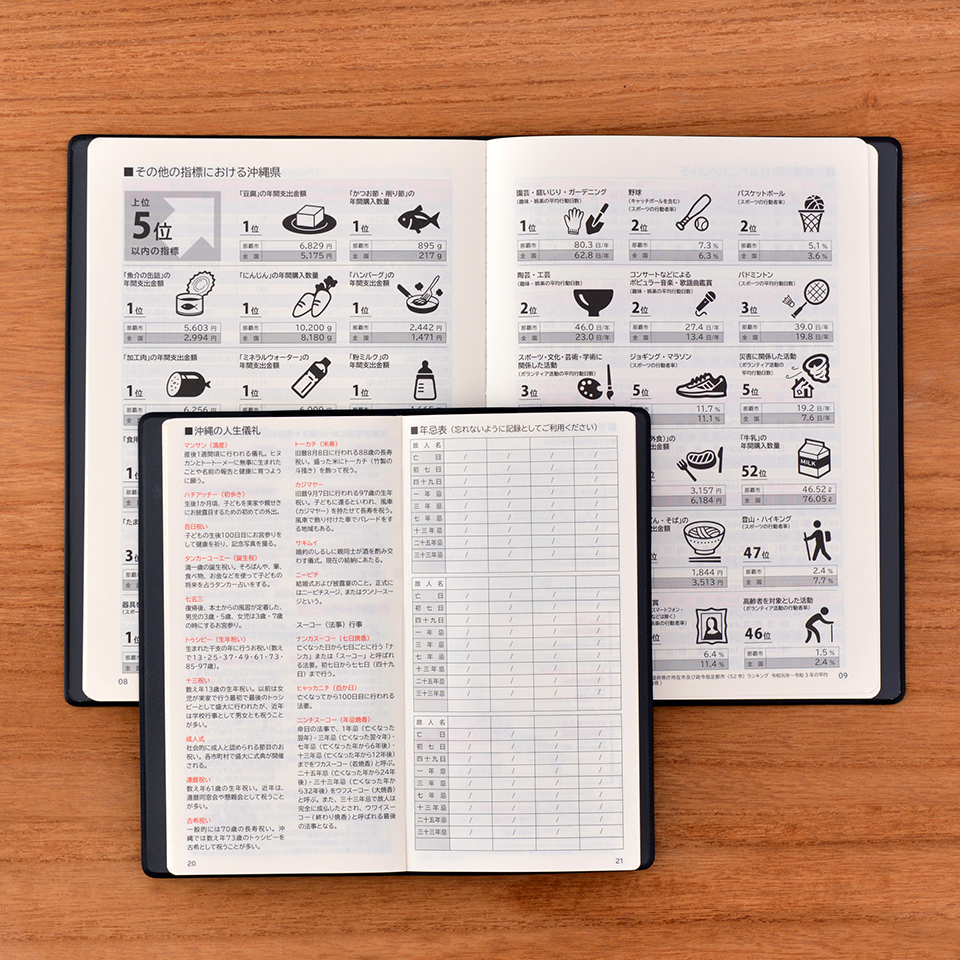 ■その他の指標における沖縄県
上位
5位
以内の指標
「豆腐」の年間支出金額
1位
那覇市 6,829 円
全国 5,175 円
「かつお節・削り節」の
年間購入数量
1位
那覇市 895 g
全国 217 g
「魚介の缶詰」の
年間支出金額
1位
那覇市 5,603 円
全国 2,994 円
「にんじん」の年間購入数量
1位
那覇市 10,200 g
全国 8,180 g
「ハンバーグ」の
年間支出金額
1位
那覇市 2,442 円
全国 1,471 円
「加工肉」の年間支出金額
1位
那覇市 6,256 円
「ミネラルウォーター」の
年間支出金額
1位
「粉ミルク」の
年間支出金額
1位
「食用
1位
1位
「たま
3位
器具を
(スポー
1位
08
園芸・庭いじり・ガーデニング
(趣味・娯楽の平均行動日数)
1位
那覇市 80.3 日/年
全国 62.8 日/年
野球
(キャッチボールを含む)
(スポーツの行動者率)
2位
那覇市 7.3 %
全国 6.3 %
バスケットボール
(スポーツの行動者率)
2位
那覇市 5.1 %
全国 3.6 %
陶芸・工芸
(趣味・娯楽の平均行動日数)
2位
那覇市 46.0 日/年
全国 23.0 日/年
コンサートなどによる
ポピュラー音楽・歌謡曲鑑賞
(趣味・娯楽の平均行動日数)
2位
那覇市 27.4 日/年
全国 13.4 日/年
バドミントン
(スポーツの平均行動日数)
3位
那覇市 39.0 日/年
全国 19.8 日/年
スポーツ・文化・芸術・学術に
関係した活動
(ボランティア活動の平均行動日数)
3位
ジョギング・マラソン
(スポーツの行動者率)
5位
11.7 %
11.1 %
災害に関係した活動
(ボランティア活動の
平均行動日数)
5位
那覇市 19.2 日/年
全国 7.6 日/年
外食)」の
金額
3,157 円
6,184 円
「牛乳」の
年間購入数量
52位
那覇市 46.52 ℓ
全国 76.05 ℓ
どん・そば」の
出金額
1,844 円
3,513 円
登山・ハイキング
(スポーツの行動者率)
47位
那覇市 2.4 %
全国 7.7 %
賞
スマートフォン・
などは除く)
楽の行動者率)
6.4 %
11.4 %
高齢者を対象とした活動
(ボランティア活動の行動者率)
46位
那覇市 1.5 %
全国 2.4 %
道府県庁所在市及び政令指定都市(52市)ランキング 令和元年ー令和3年の平均
09
■沖縄の人生儀礼
マンサン(満産)
産後1週間頃に行われる儀礼。ヒヌ
カンとトートーメーに無事に生まれた
ことや名前の報告と健康に育つよう
に願う。
ハチアッチー(初歩き)
生後1か月頃、子どもを実家や親せき
にお披露目するための初めての外出。
百日祝い
子どもの生後100日目にお宮参りを
して健康を祈り、記念写真を撮る。
タンカーユーエー(誕生祝)
満一歳の誕生祝い。そろばんや、筆、
食べ物、お金などを使って子どもの
将来を占うタンカー占いをする。
七五三
復帰後、本土からの風習が定着した、
男児の3歳・5歳、女児は3歳・7歳
の時にするお宮参り。
トゥシビー(生年祝い)
生まれた干支の年に行うお祝い(数え
で13・25・37・49・61・73・
85・97歳)。
十三祝い
数え年13歳の生年祝い。以前は女
児が実家で行う最初で最後のトゥシ
ビーとして盛大に行われたが、近年
は学校行事として男女とも祝うこと
が多い。
成人式
社会的に成人と認められる節目のお
祝い。各市町村で盛大に式典が開催
される。
還暦祝い
数え年61歳の生年祝い。近年は、
還暦同窓会や懇親会として行うこと
が多い。
古希祝い
一般的には70歳の長寿祝い。沖
縄では数え年73歳のトゥシビーを
古希として祝うことが多い。
20
トーカチ(米寿)
旧暦8月8日に行われる88歳の長寿
祝い。盛った米にトーカチ(竹製の
斗掻き)を飾って祝う。
カジマヤー
旧暦9月7日に行われる97歳の生年
祝い。子どもに還るといわれ、風車
(カジマヤー)を持たせて長寿を祝う。
風車で飾り付けた車でパレードをす
る地域もある。
サキムイ
婚約のしるしに親同士が酒を酌み交
わす儀式。現在の結納にあたる。
ニービチ
結婚式および披露宴のこと。正式に
はニービチスージ、またはケンリースー
ジという。
スーコー(法事)行事
ナンカスーコー(七日焼香)
亡くなった日から七日ごとに行う「ナ
ンカ」または「スーコー」と呼ばれ
る法要。初七日から七七日(四十九
日)まで行う。
ヒャッカニチ(百か日)
亡くなってから100日目に行われる
法要。
ニンチスーコー(年忌焼香)
命日の法事で、1年忌(亡くなった
翌年)・三年忌(亡くなった翌々年)・
七年忌(亡くなった年から6年後)・
十三年忌(亡くなった年から12年後)
までをワカスーコー(若焼香)と呼ぶ。
二十五年忌(亡くなった年から24年
後)・三十三年忌(亡くなった年か
ら32年後)をウフスーコー(大焼香)
と呼ぶ。また、三十三年忌で故人は
完全に成仏したとされ、ウワイスー
コー(終わり焼香)と呼ばれる最後
の法事となる。
■年忌表(忘れないように記録としてご利用ください)
故人名
亡日 / / / /
初七日 / / / /
四十九日 / / / /
一年忌 / / / /
三年忌 / / / /
七年忌 / / / /
十三年忌 / / / /
二十五年忌 / / / /
三十三忌 / / / /
故人名
亡日 / / / /
初七日 / / / /
四十九日 / / / /
一年忌 / / / /
三年忌 / / / /
七年忌 / / / /
十三年忌 / / / /
二十五年忌 / / / /
三十三忌 / / / /
故人名
亡日 / / / /
初七日 / / / /
四十九日 / / / /
一年忌 / / / /
三年忌 / / / /
七年忌 / / / /
十三年忌 / / / /
二十五年忌 / / / /
三十三忌 / / / /
21